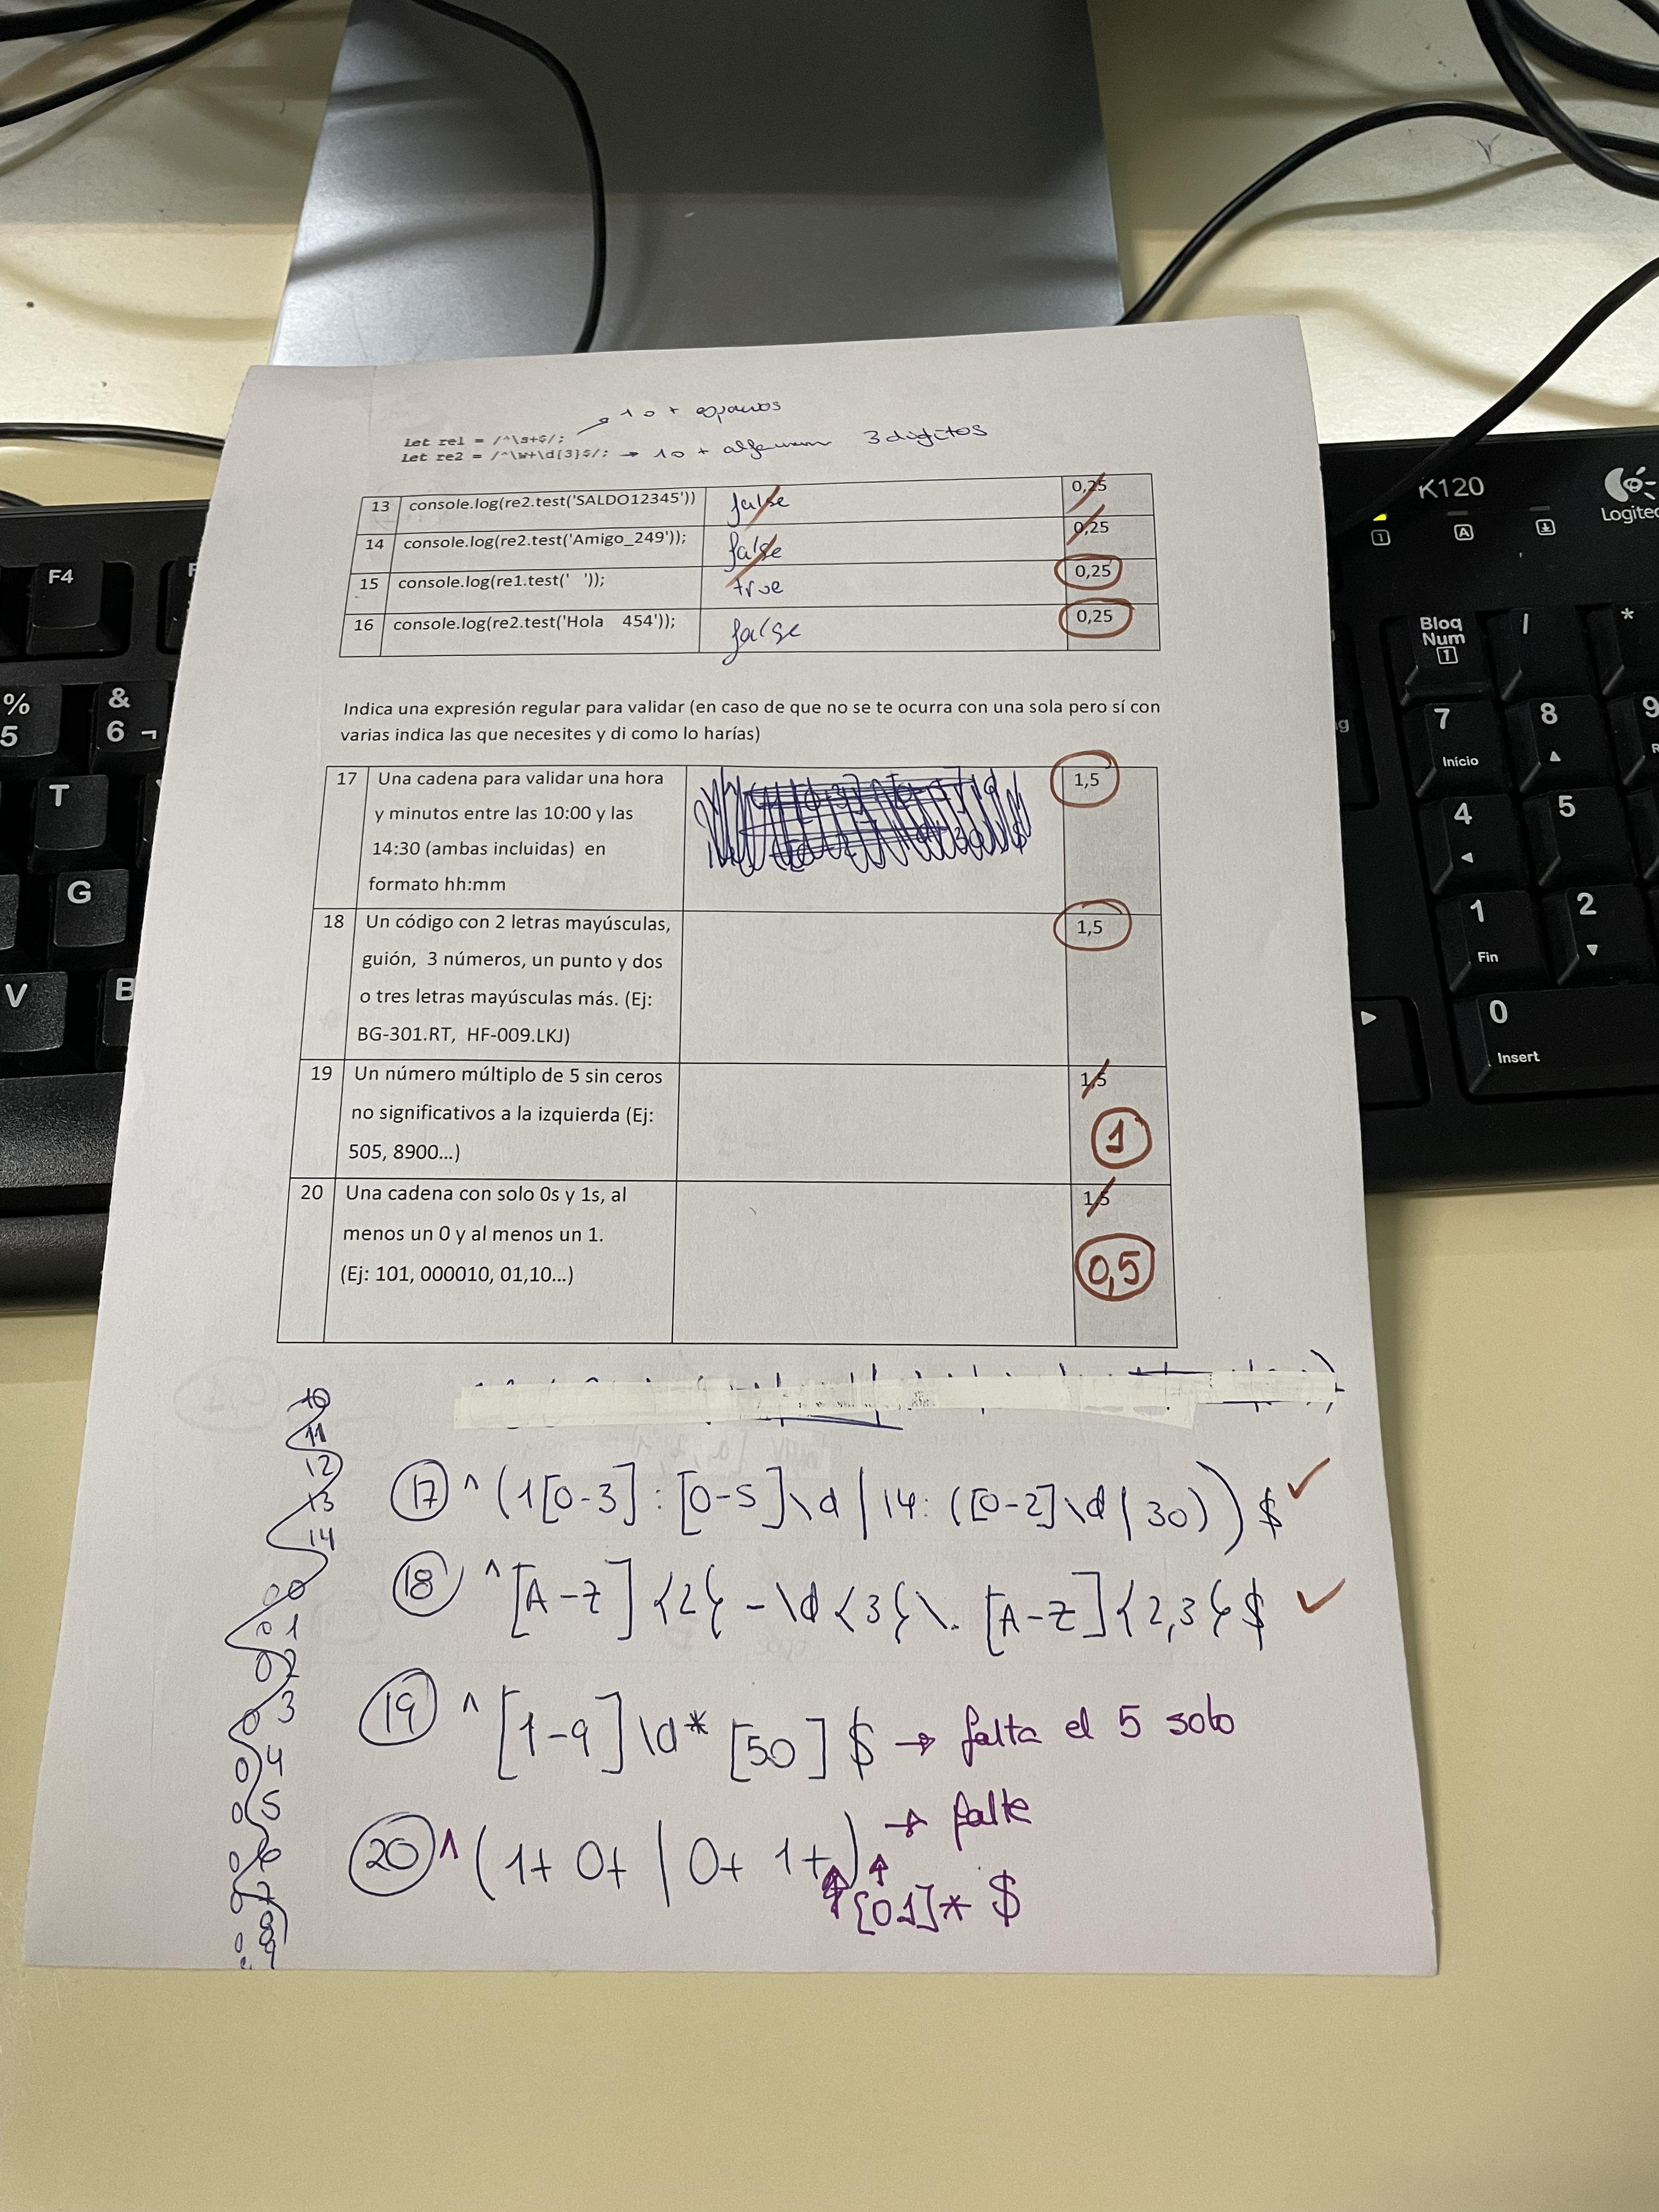 → 1 o + espacios
let re1 = /^\s+$/;
let re2 = /^\w+\d{3}$/; → 1 o + alfanum 3 digitos
13 console.log(re2.test('SALDO12345')) false 0,25
14 console.log(re2.test('Amigo_249')); false 0,25
15 console.log(re1.test('   ')); true 0,25
16 console.log(re2.test('Hola   454')); false 0,25
Indica una expresión regular para validar (en caso de que no se te ocurra con una sola pero sí con
varias indica las que necesites y di como lo harías)
17 Una cadena para validar una hora 1,5
y minutos entre las 10:00 y las
14:30 (ambas incluidas) en
formato hh:mm
18 Un código con 2 letras mayúsculas, 1,5
guión, 3 números, un punto y dos
o tres letras mayúsculas más. (Ej:
BG-301.RT, HF-009.LKJ)
19 Un número múltiplo de 5 sin ceros 1,5
no significativos a la izquierda (Ej: 1
505, 8900...)
20 Una cadena con solo 0s y 1s, al 1,5
menos un 0 y al menos un 1.
(Ej: 101, 000010, 01,10...) 0,5
10
11
12
13
14
00
01
02
03
04
05
06
07
08
09
17 ^(1[0-3]:[0-5]\d|14:([0-2]\d|30))$ ✓
18 ^[A-Z]{2}-\d{3}\.[A-Z]{2,3}$ ✓
19 ^[1-9]\d*[50]$ → falta el 5 solo
20 ^(1+0+|0+1+) → falta
[01]* $
K120
Logitec
F4
%
5
&
6 ¬
T
G
V
B
Bloq
Num
1
/
*
7
Inicio
8
9
4
5
1
Fin
2
0
Insert